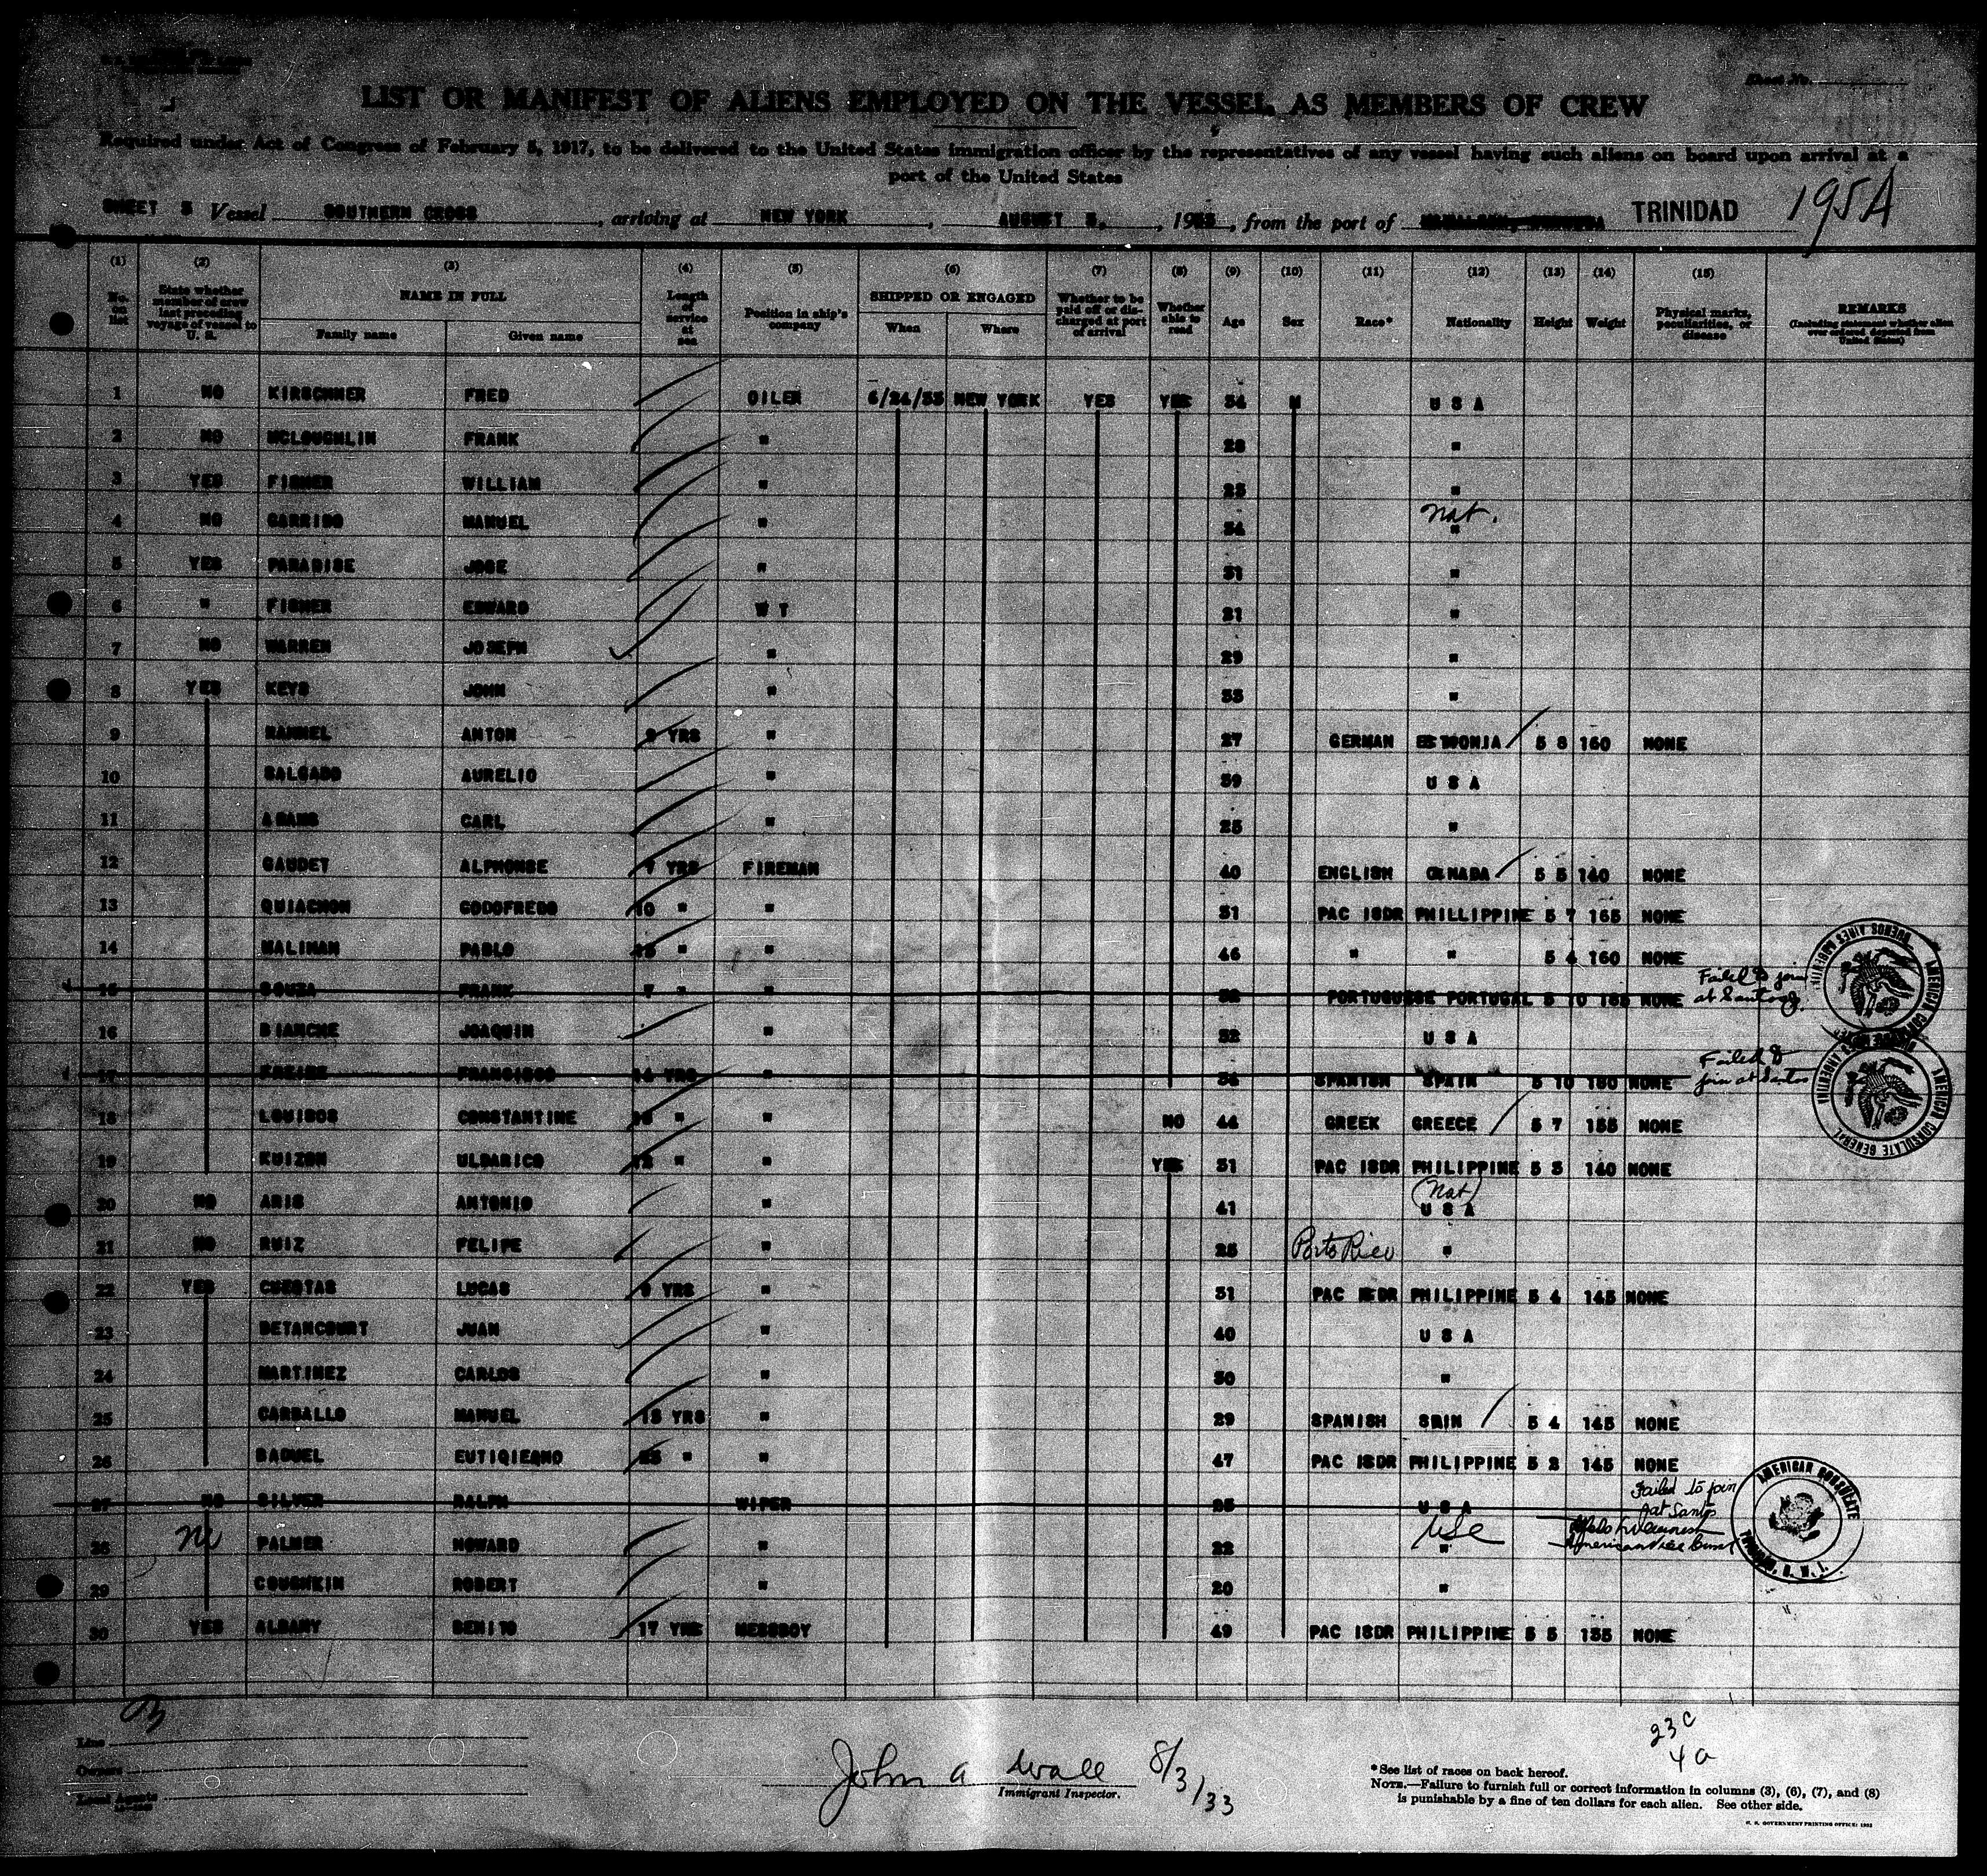 Sheet No.
LIST OR MANIFEST OF ALIENS EMPLOYED ON THE VESSEL AS MEMBERS OF CREW
Required under Act of Congress of February 5, 1917, to be delivered to the United States immigration officer by the representatives of any vessel having such aliens on board upon arrival at a
port of the United States
SHEET 5 Vessel SOUTHERN CROSS, arriving at NEW YORK, AUGUST 3, 1933, from the port of TRINIDAD 195A
(1) (2) (3) (4) (5) (6) (7) (8) (9) (10) (11) (12) (13) (14) (15)
No. on list
State whether member of crew last preceding voyage of vessel to U. S.
NAME IN FULL
Family name Given name
Length of service at sea
Position in ship's company
SHIPPED OR ENGAGED
When Where
Whether to be paid off or discharged at port of arrival
Whether able to read
Age Sex Race* Nationality Height Weight
Physical marks, peculiarities, or disease
REMARKS
(Including statement whether alien ever ordered deported from United States)
1 NO KIRSCHNER FRED OILER 6/24/33 NEW YORK YES YES 34 M U S A
2 NO MCLOUGHLIN FRANK " 28 "
3 YES FISHER WILLIAM " 23 "
4 NO GARRIDO MANUEL " 34 Nat. "
5 YES PARADISE JOSE " 31 "
6 " FISHER EDWARD W T 21 "
7 NO WARREN JOSEPH " 29 "
8 YES KEYS JOHN " 33 "
9 HAMMEL ANTON 9 YRS " 27 GERMAN ESTHONIA 5 8 160 NONE
10 SALGADO AURELIO " 39 U S A
11 ADAMS CARL " 25 "
12 GAUDET ALPHONSE 7 YRS FIREMAN 40 ENGLISH CANADA 5 5 140 NONE
13 QUIACHON GODOFREDO 10 " " 31 PAC ISDR PHILLIPPINE 5 7 165 NONE
14 MALIMAN PABLO 15 " " 46 " " 5 4 160 NONE
15 SOUZA FRANK 7 " " PORTUGUESE PORTUGAL 5 10 155 NONE Failed to join at Santos
16 BIANCHE JOAQUIN " 32 U S A
17 FREIRE FRANCISCO 14 YRS " 34 SPANISH SPAIN 5 10 150 NONE Failed to join at Santos
18 LOUISOS CONSTANTINE " " NO 44 GREEK GREECE 5 7 155 NONE
19 KUIZON ULDARICO 12 " " YES 31 PAC ISDR PHILIPPINE 5 3 140 NONE
20 NO ARIS ANTONIO " 41 (Nat) U S A
21 NO RUIZ FELIPE " 25 Porto Rico "
22 YES CUESTAS LUCAS 9 YRS " 31 PAC ISDR PHILIPPINE 5 4 145 NONE
23 BETANCOURT JUAN " 40 U S A
24 MARTINEZ CARLOS " 30 "
25 CARBALLO MANUEL 13 YRS " 29 SPANISH SPIN 5 4 145 NONE
26 BADUEL EUTIQIEANO 25 " " 47 PAC ISDR PHILIPPINE 5 2 145 NONE
27 NO SILVER RALPH WIPER 25 U S A Failed to join at Santos
28 No PALMER HOWARD " 22 USC " American Vice Consul
29 COUSHKIN ROBERT " 20 "
30 YES ALBANY BENITO 17 YRS MESSBOY 49 PAC ISDR PHILIPPINE 5 5 135 NONE
AMERICAN CONSULATE GENERAL
BUENOS AIRES ARGENTINE
AMERICAN CONSULATE GENERAL
BUENOS AIRES ARGENTINE
AMERICAN CONSULATE
TRINIDAD, B. W. I.
Line
Owners
Local Agents
John A Wall 8/3/33
Immigrant Inspector.
23 C
4 a
*See list of races on back hereof.
NOTE.—Failure to furnish full or correct information in columns (3), (6), (7), and (8)
is punishable by a fine of ten dollars for each alien. See other side.
U. S. GOVERNMENT PRINTING OFFICE: 1932